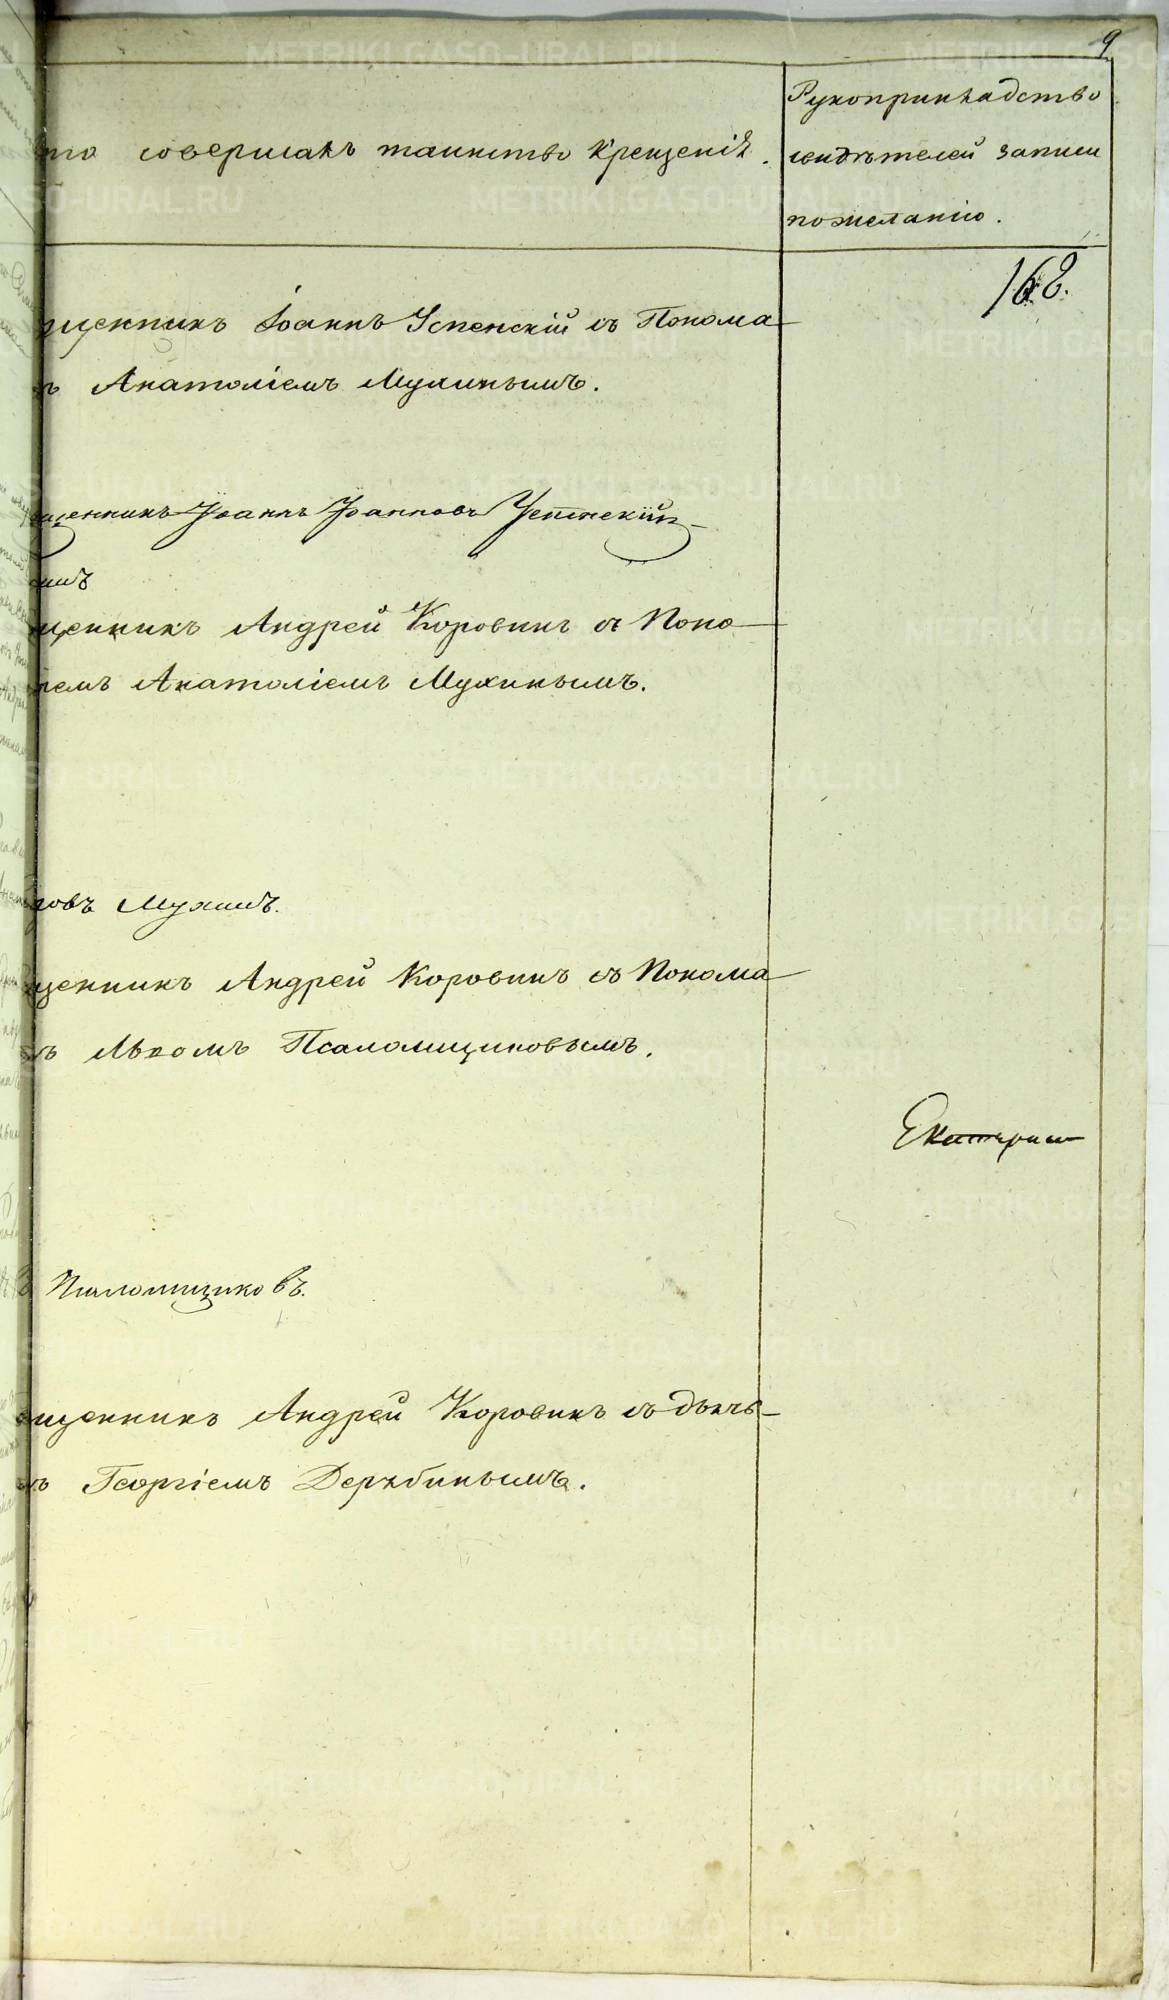 9
то совершалъ таинство Крещенія.
Рукоприкладство
свидѣтелей записи
пожеланію.
168.
щенникъ Іоаннъ Успенскій съ Понома
ъ Анатоліемъ Мухинымъ.
щенникъ Іоаннъ Іоанновъ Успенскій
щенникъ Андрей Коровинъ съ Поно
ремъ Анатоліемъ Мухинымъ.
овъ Мухинъ.
щенникъ Андрей Коровинъ съ Понома
ъ Львомъ Псаломщиковымъ.
Екатерин
Псаломщиковъ.
щенникъ Андрей Коровинъ съ дьяч
ъ Георгіемъ Дерябинымъ.
METRIKI.GASO-URAL.RU